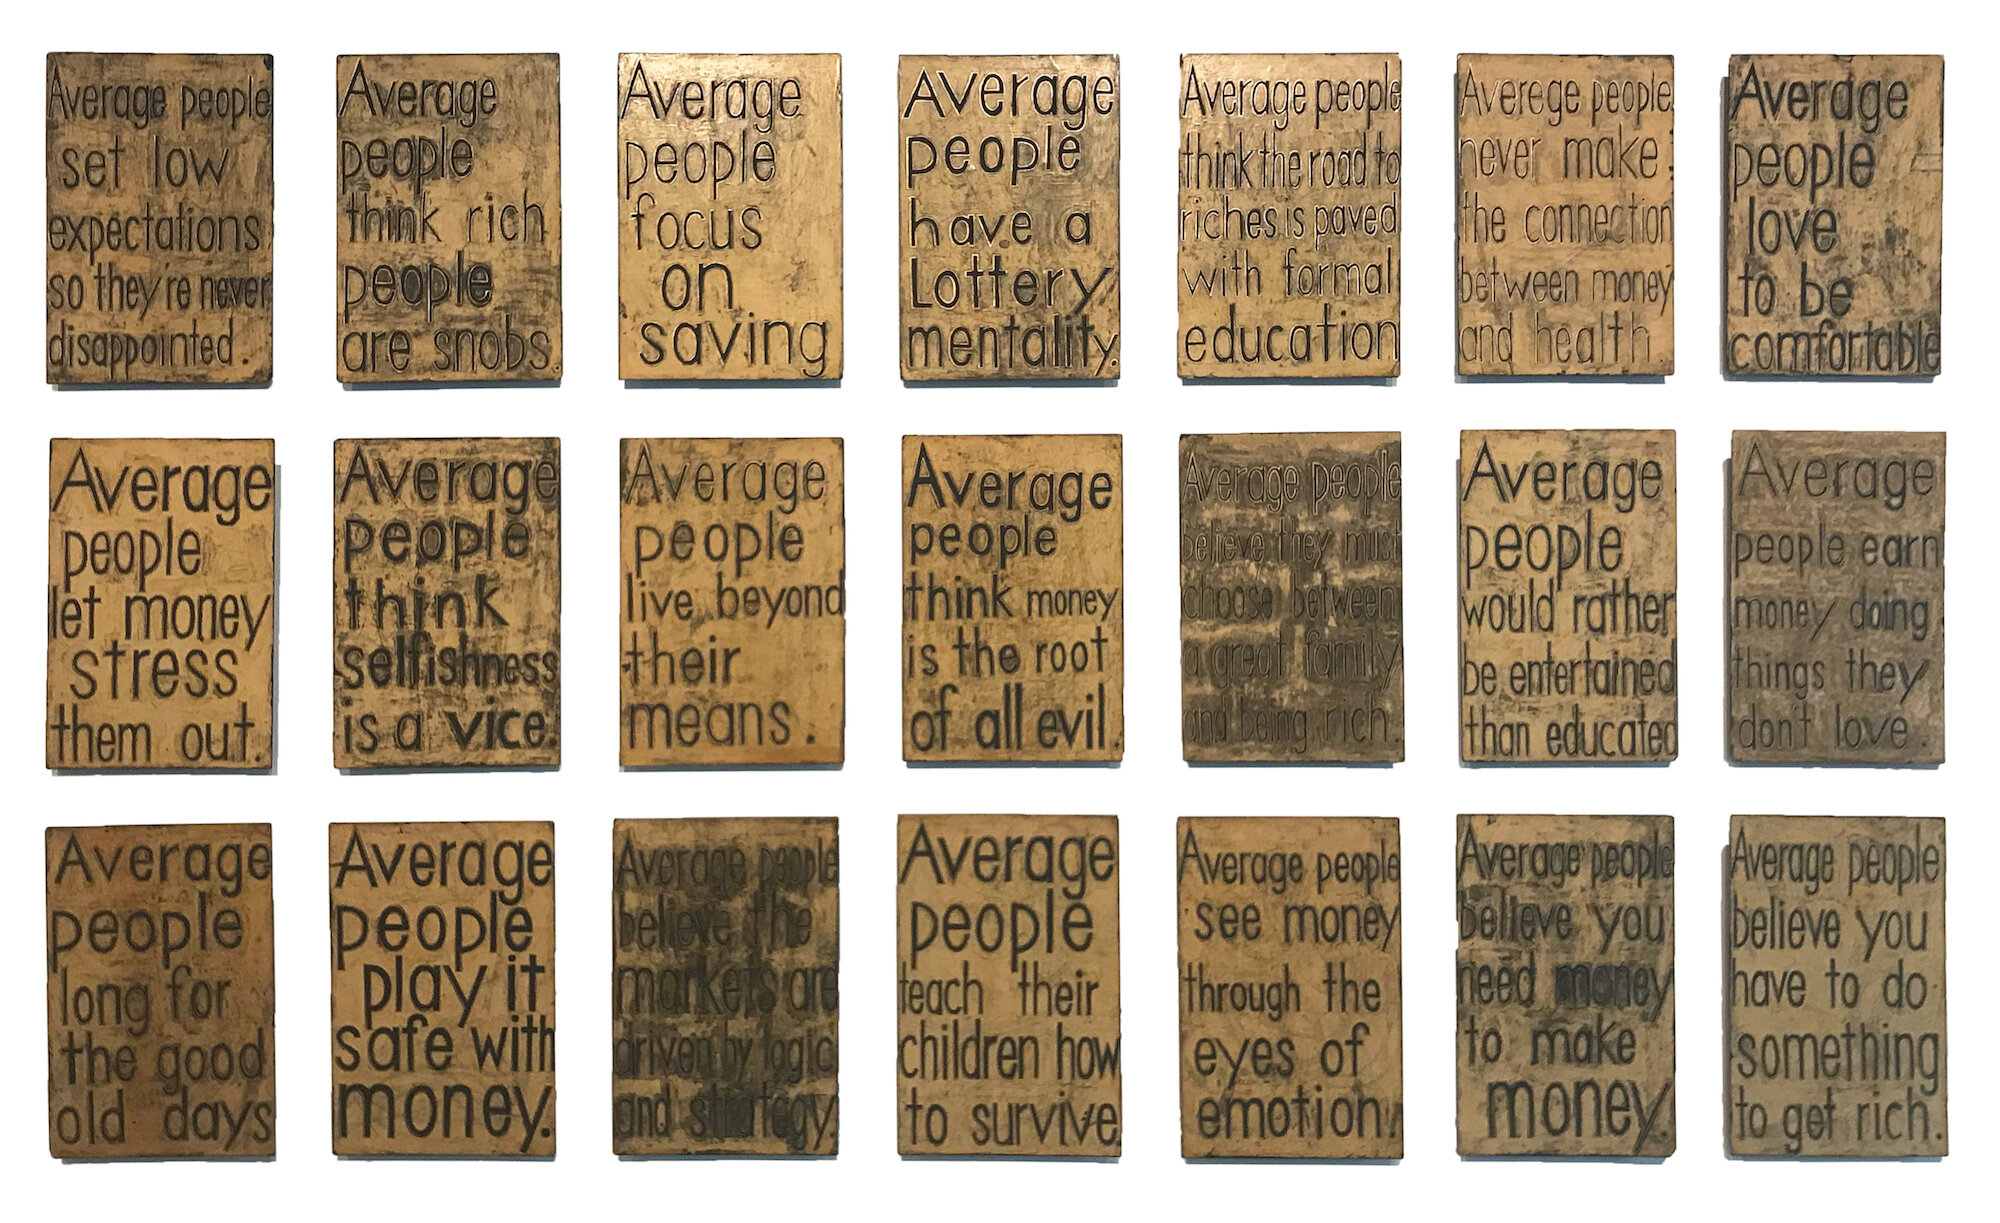 Average people
set low
expectations
so they're never
disappointed.
Average
people
think rich
people
are snobs.
Average
people
focus
on
saving
Average
people
have a
Lottery
mentality.
Average people
think the road to
riches is paved
with formal
education
Averege people
never make
the connection
between money
and health.
Average
people
love
to be
comfortable
Average
people
let money
stress
them out.
Average
people
think
selfishness
is a vice.
Average
people
live beyond
their
means.
Average
people
think money
is the root
of all evil.
Average people
believe they must
choose between
a great family
and being rich.
Average
people
would rather
be entertained
than educated
Average
people earn
money doing
things they
don't love.
Average
people
long for
the good
old days
Average
people
play it
safe with
money.
Average people
believe the
markets are
driven by logic
and strategy.
Average
people
teach their
children how
to survive.
Average people
see money
through the
eyes of
emotion.
Average people
believe you
need money
to make
money.
Average people
believe you
have to do
something
to get rich.